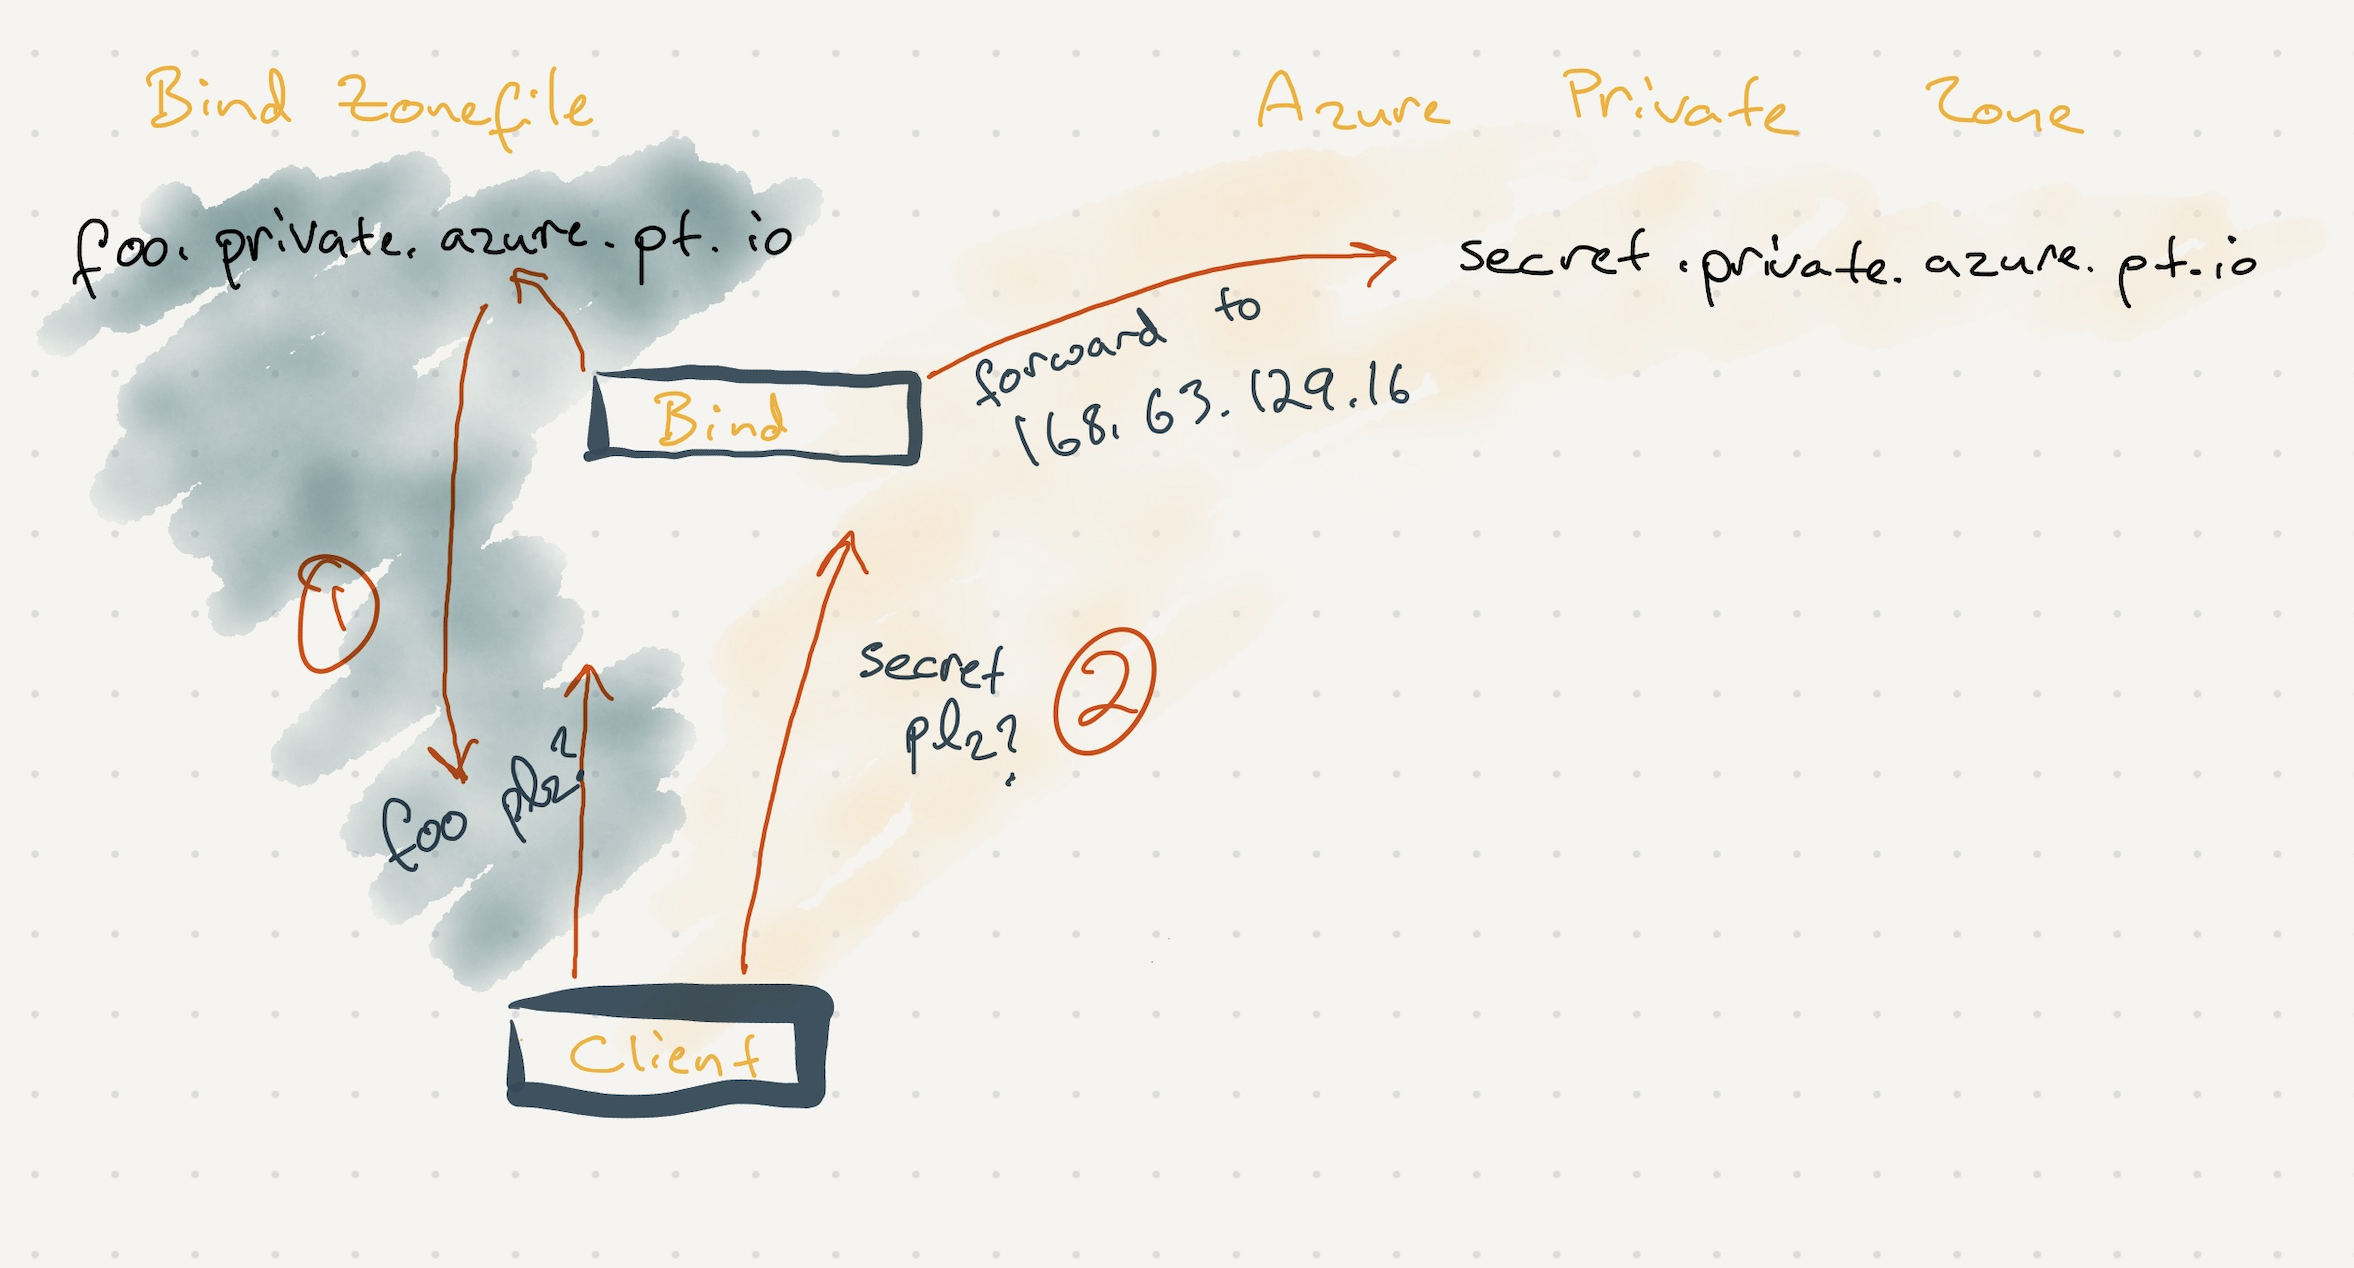 Bind Zonefile
Azure Private Zone
foo. private. azure. pt. io
secret .private. azure. pt.io
forward to
168. 63. 129.16
Bind
1
secret
plz?
2
foo plz?
Client